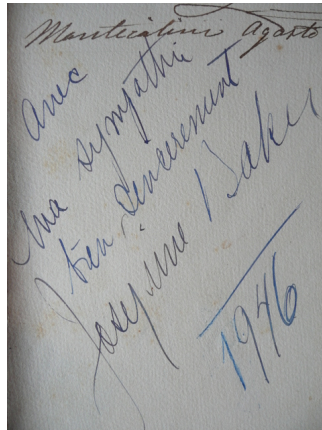 Montecatini Agosto
avec
ma sympathie
bien sincerement
Josephine Baker
1946